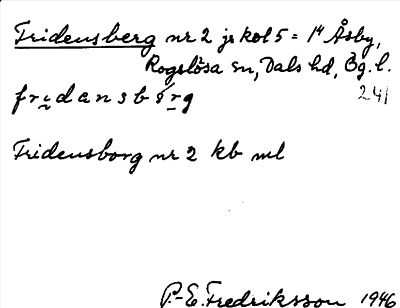 Fridensberg nr 2 jr kol 5 = 1⁴ Åsby,
Rogslösa sn, Dals hd, Ög. l.
fridansbärg 241
Fridensborg nr 2 kb ml
P.-E. Fredriksson 1946